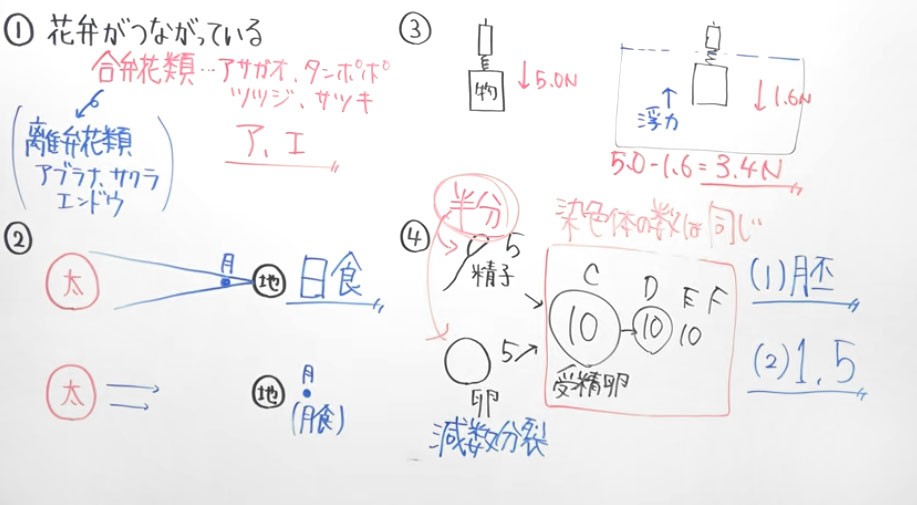 ① 花弁がつながっている
合弁花類…アサガオ、タンポポ
ツツジ、サツキ
離弁花類
アブラナ、サクラ
エンドウ
ア、エ
②
太
月
地
日食
太
地
月
(月食)
③
物
↓5.0N
↑
浮力
↓1.6N
5.0-1.6=3.4N
④
半分
5
精子
5
卵
減数分裂
染色体の数は同じ
C
D
E F
10
10
10
受精卵
(1)胚
(2)1.5